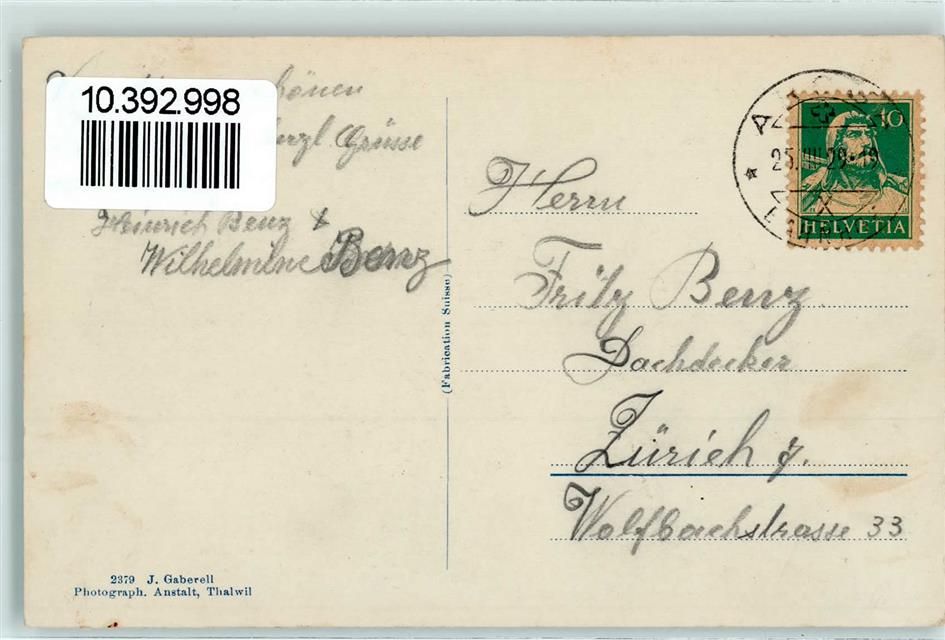 10.392.998
herzl Grüsse
Heinrich Benz &
Wilhelmine Benz
(Fabrication Suisse)
2379 J. Gaberell
Photograph. Anstalt, Thalwil
10
HELVETIA
25.VIII.29-19
Herrn
Fritz Benz
Dachdecker
Zürich 7.
Wolfbachstrasse 33